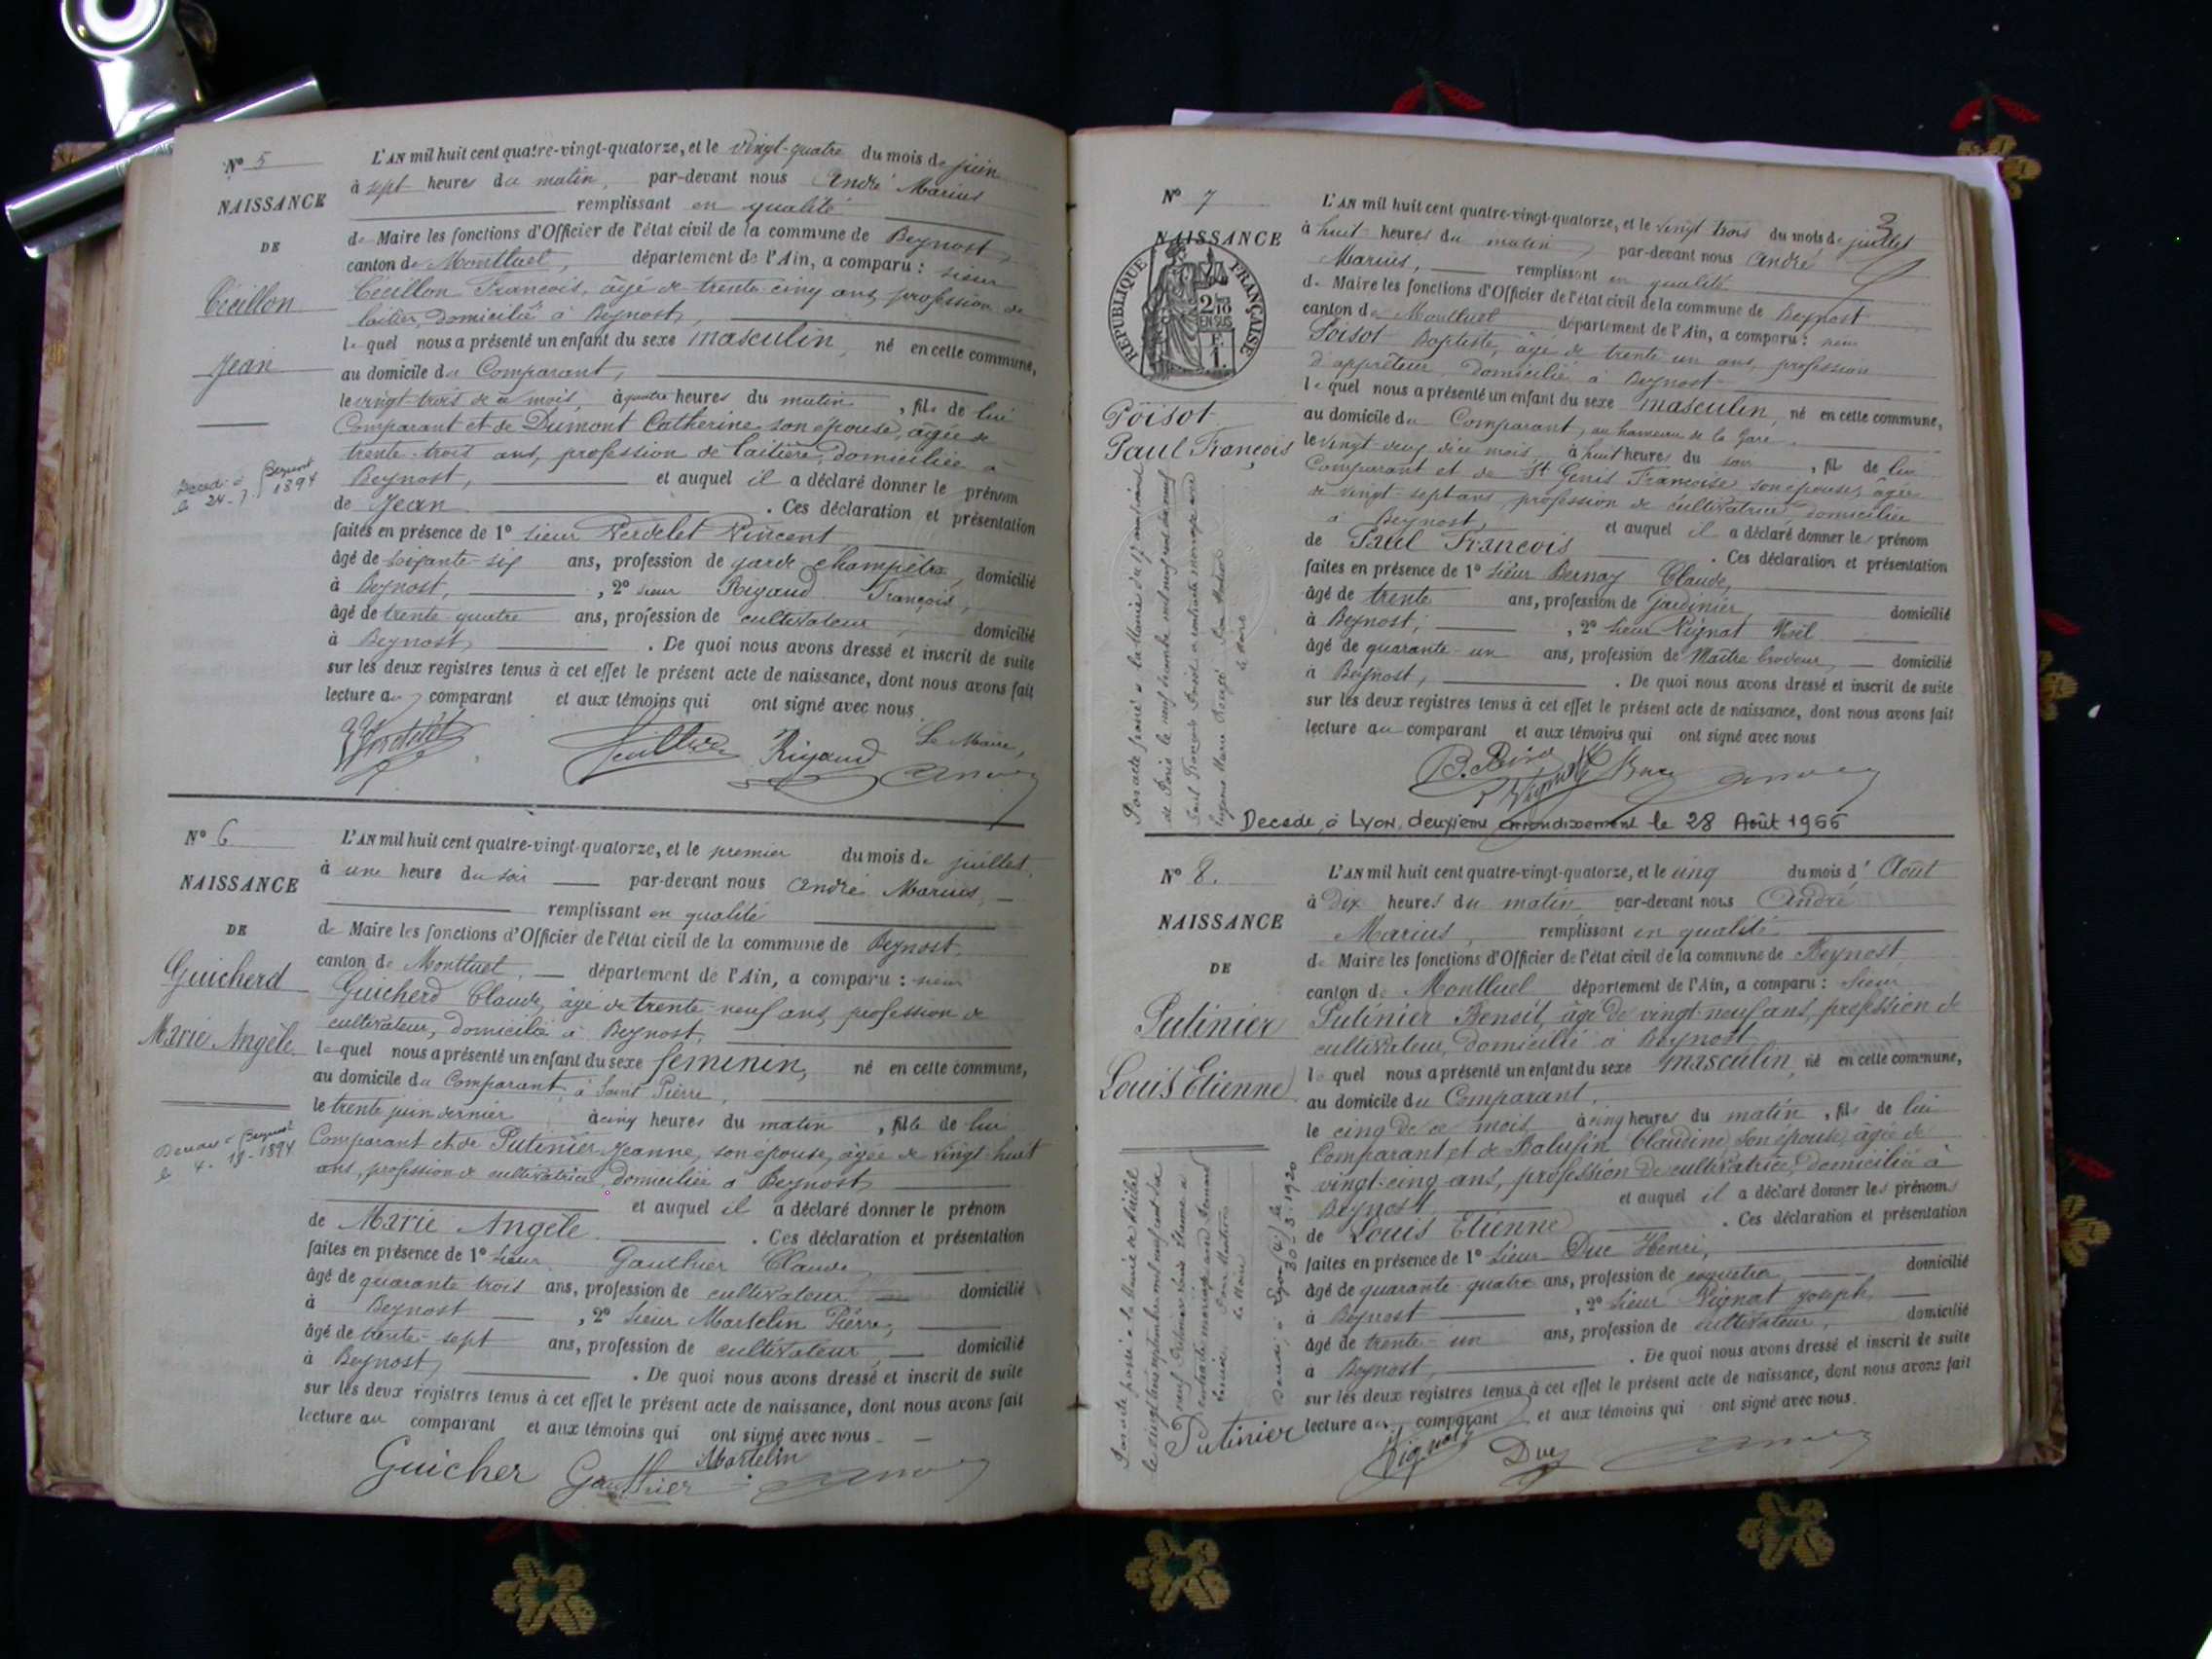 N° 5
NAISSANCE
DE
Técillon
Jean
Décédé à Beynost
le 24-7-1894
L'AN mil huit cent quatre-vingt-quatorze, et le vingt-quatre du mois de juin
à sept heures du matin, par-devant nous André Marius
remplissant en qualité
de Maire les fonctions d'Officier de l'état civil de la commune de Beynost,
canton de Montluel, département de l'Ain, a comparu : sieur
François, âgé de trente-cinq ans, profession de
laitier, domicilié à Beynost,
lequel nous a présenté un enfant du sexe masculin, né en cette commune,
au domicile du Comparant,
le vingt-trois de ce mois, à quatre heures du matin, fils de lui
Comparant et de Dumont Catherine son épouse, âgée de
trente-trois ans, profession de laitière, domiciliée à
Beynost, et auquel il a déclaré donner le prénom
de Jean. Ces déclaration et présentation
faites en présence de 1° sieur Verdelet Vincent
âgé de soixante-six ans, profession de garde champêtre, domicilié
à Beynost, 2° sieur Rigaud François,
âgé de trente quatre ans, profession de cultivateur, domicilié
à Beynost, . De quoi nous avons dressé et inscrit de suite
sur les deux registres tenus à cet effet le présent acte de naissance, dont nous avons fait
lecture au comparant et aux témoins qui ont signé avec nous
Verdelet Rigaud Le Maire,
N° 6
NAISSANCE
DE
Guicherd
Marie Angèle
Beynost
1894
L'AN mil huit cent quatre-vingt-quatorze, et le premier du mois de juillet,
à une heure du soir par-devant nous André Marius,
remplissant en qualité
de Maire les fonctions d'Officier de l'état civil de la commune de Beynost,
canton de Montluel, département de l'Ain, a comparu : sieur
Guicherd Claude, âgé de trente-neuf ans, profession de
cultivateur, domicilié à Beynost,
lequel nous a présenté un enfant du sexe féminin, né en cette commune,
au domicile du Comparant, à Saint Pierre,
le trente juin dernier à cinq heures du matin, fille de lui
Comparant et de Putinier Jeanne, son épouse, âgée de vingt-huit
ans, profession de cultivatrice, domiciliée à Beynost,
et auquel il a déclaré donner le prénom
de Marie Angèle. Ces déclaration et présentation
faites en présence de 1° sieur Gauthier Claude,
âgé de quarante trois ans, profession de cultivateur domicilié
à Beynost, 2° sieur Martelin Pierre,
âgé de trente-sept ans, profession de cultivateur, domicilié
à Beynost, . De quoi nous avons dressé et inscrit de suite
sur les deux registres tenus à cet effet le présent acte de naissance, dont nous avons fait
lecture au comparant et aux témoins qui ont signé avec nous
Guicher Gauthier Martelin
3
N° 7
NAISSANCE
RÉPUBLIQUE FRANÇAISE
2/10 EN SUS
Poisot
Paul François
L'AN mil huit cent quatre-vingt-quatorze, et le vingt trois du mois de juillet
à huit heures du matin, par-devant nous André
Marius, remplissant en qualité
de Maire les fonctions d'Officier de l'état civil de la commune de Beynost
canton de Montluel département de l'Ain, a comparu : sieur
Poisot Baptiste, âgé de trente-un ans, profession
d'apprêteur, domicilié à Beynost
lequel nous a présenté un enfant du sexe masculin, né en cette commune,
au domicile du Comparant, au hameau de la Gare,
le vingt-deux de ce mois, à huit heures du soir, fils de lui
Comparant et de St Genis Françoise son épouse, âgée
de vingt-sept ans, profession de cultivatrice, domiciliée
à Beynost, et auquel il a déclaré donner les prénom
de Paul François. Ces déclaration et présentation
faites en présence de 1° sieur Bernay Claude,
âgé de trente ans, profession de jardinier, domicilié
à Beynost, 2° sieur Vignat Noël
âgé de quarante-un ans, profession de Maître brodeur, domicilié
à Beynost, . De quoi nous avons dressé et inscrit de suite
sur les deux registres tenus à cet effet le présent acte de naissance, dont nous avons fait
lecture au comparant et aux témoins qui ont signé avec nous
Décédé à Lyon, deuxième arrondissement le 28 Août 1966
N° 8.
NAISSANCE
DE
Putinier
Louis Etienne
30-3-1920
L'AN mil huit cent quatre-vingt-quatorze, et le cinq du mois d'Août
à dix heures du matin par-devant nous André
Marius, remplissant en qualité
de Maire les fonctions d'Officier de l'état civil de la commune de Beynost,
canton de Montluel département de l'Ain, a comparu : sieur
Putinier Benoit, âgé de vingt-neuf ans, profession de
cultivateur, domicilié à Beynost
lequel nous a présenté un enfant du sexe masculin, né en cette commune,
au domicile du Comparant,
le cinq de ce mois, à cinq heures du matin, fils de lui
Comparant et de Claudine son épouse, âgée de
vingt-cinq ans, profession de cultivatrice, domiciliée à
Beynost, et auquel il a déclaré donner les prénoms
de Louis Etienne. Ces déclaration et présentation
faites en présence de 1° sieur Duc Henri,
âgé de quarante-quatre ans, profession de domicilié
à Beynost, 2° sieur Vignat Joseph,
âgé de trente-un ans, profession de cultivateur, domicilié
à Beynost, . De quoi nous avons dressé et inscrit de suite
sur les deux registres tenus à cet effet le présent acte de naissance, dont nous avons fait
lecture au comparant et aux témoins qui ont signé avec nous.
Putinier Vignat Duc